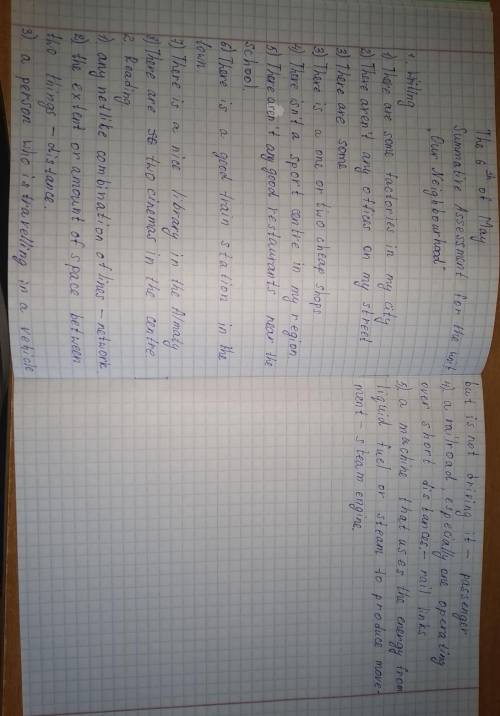 The 6th of May
Summative Assessment for the unit
"Our Neighbourhood"
1. Writing
1) There are some factories in my city
2) There aren't any offices on my street
3) There are some
3) There is a one or two cheap shops
4) There isn't a sport centre in my region
5) There aren't any good restaurants near the
school.
6) There is a good train station in the
town
7) There is a nice library in the Almaty
8) There are two cinemas in the centre
2. Reading
1) any netlike combination of lines – network
2) the extent or amount of space between
two things – distance.
3) a person who is travelling in a vehicle
but is not driving it – passenger
4) a railroad, especially one operating
over short distances. – rail links
5) a machine that uses the energy from
liquid fuel or steam to produce move-
ment – steam engine.